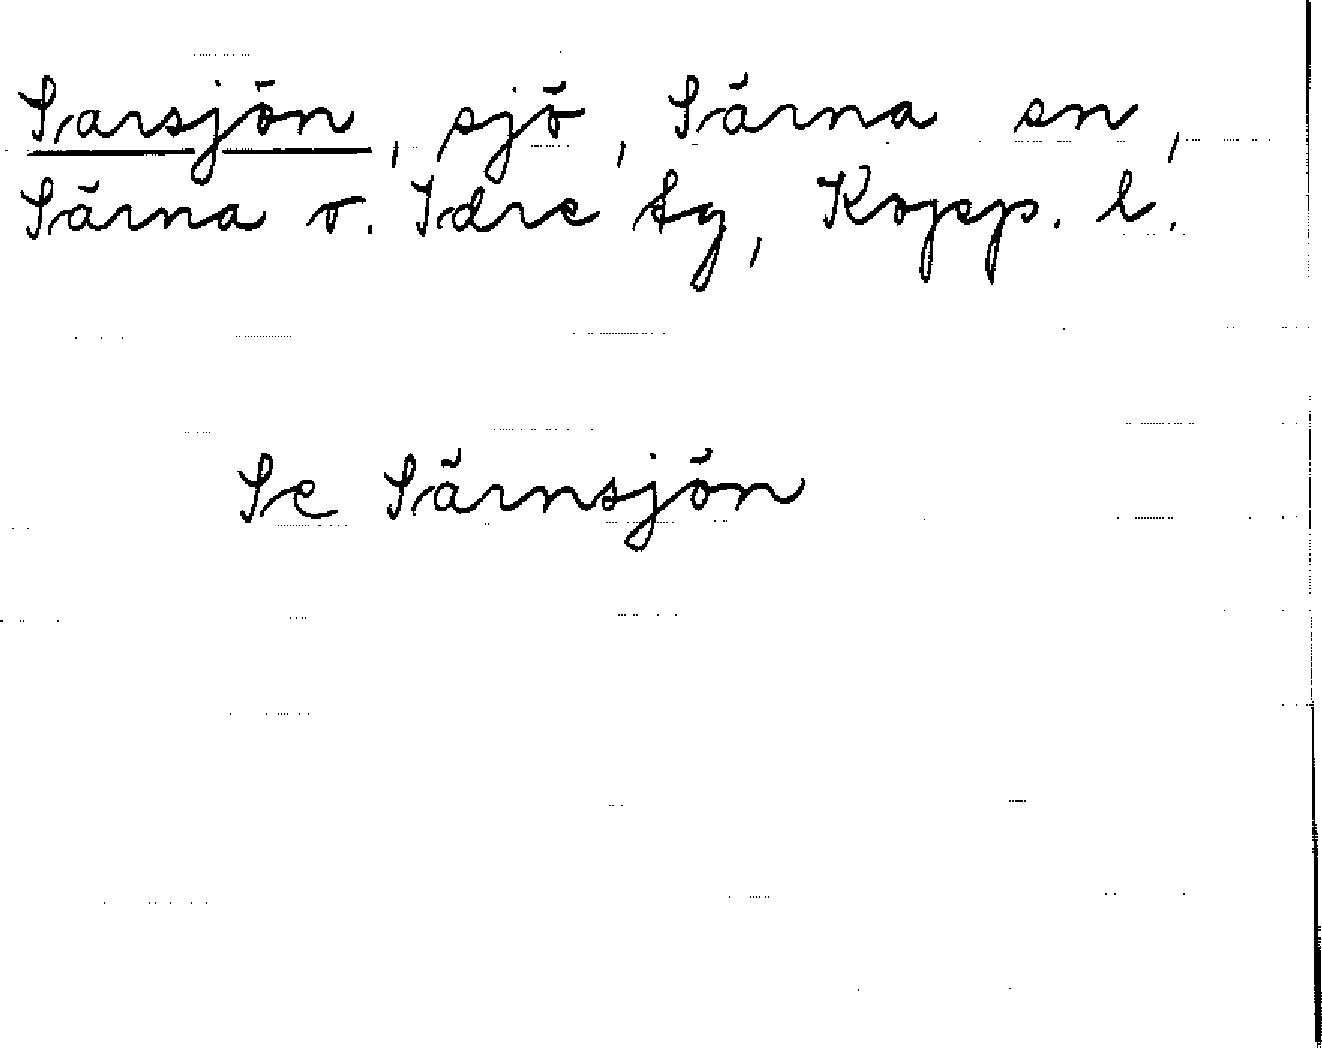 Sarsjön, sjö, Särna sn,
Särna o. Idre tg, Kopp. l.
Se Särnsjön